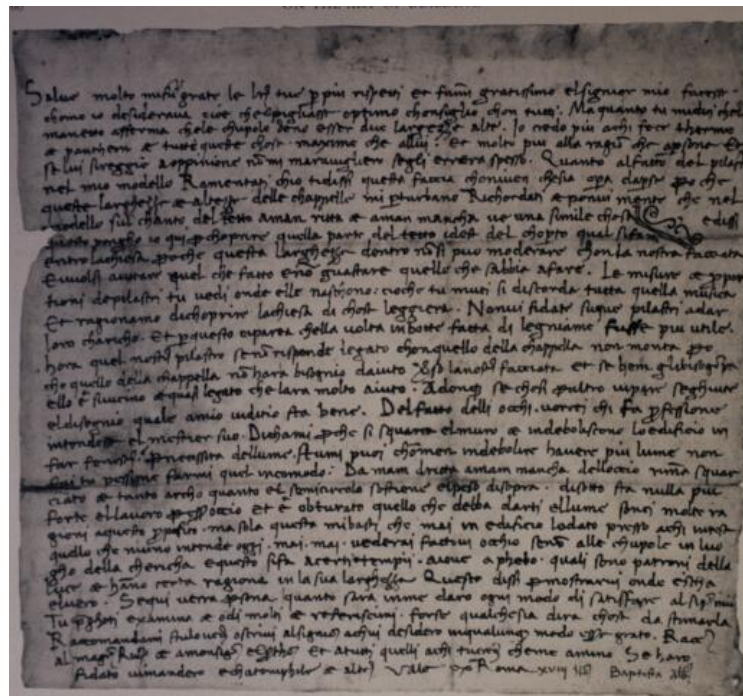 ON THE ART OF BUILDING
Salve molto mi fur grate le lrē tue p piu rispetti et fumi gratissimo el signior mio facesse
chomo io desiderava cioe chel pigliasse optimo chonsiglio chon tutti. Ma quanto tu mi dici chel
manetto afferma chele chupole deno esser due largezze alte. Io credo piu a chi fece therme
et pantheon et tutte queste chose maxime che allui. Et molto piu alla ragion che a persona. Et
se lui si reggie a oppinione non mi maraviglierò segli errera spesso. Quanto al fatto del pilastro
nel mio modello Ramentati chio ti dissi questa faccia chonvien che sia opera da per se pero che
queste larghezze et altezze delle chappelle mi perturbano Richordati et ponvi mente che nel
modello sul chanto del tetto a man ritta et a man mancha ve una simile chosa e dissi
questo pongho io qui per choprire quella parte del tetto idest del choperto qual si fara
entro la chiesa pero che questa larghezza dentro non si puo moderare chon la nostra facciata
Et vuolsi aiutare quel che fatto e non guastare quello che sabbia a fare. Le misure et propor
tioni de pilastri tu vedi onde elle naschono: cio che tu muti si discorda tutta quella musica
Et ragionamo di choprire la chiesa di chosa leggiera. Non vi fidate su que pilastri a dar
loro charicho. Et per questo ci pareva che la volta in botte fatta di legniame fusse piu utile.
hora quel nostro pilastro se non risponde legato chon quello della chappella non monta pero
che quello della chappella non hara bisognio daiuto verso la nostra facciata Et se bisogniera
ello e si vicino et quasi legato che lara molto aiuto. Adonque se chosi per altro vi pare seghuite
el disegnio quale a mio iuditio sta bene. Del fatto delli occhi vorrei chi fa professione
intendesse el mestier suo. Dichami perche si squarta el muro et indebolischono lo edificio in
far fenestre? Per necessita del lume. Se tu mi puoi chon men indebolire havere piu lume non
fai tu pessime farmi quel incomodo? Da man dricta a man mancha dell occhio riman squar
ciato et tanto archo quanto el semicircolo sostiene el peso di sopra. di sotto sta nulla piu
forte el lavoro per essere occio et e obturato quello che debba darti el lume. Sonci molte ra
gioni a questo proposito. ma sola questa mi basti che mai in edificio lodato presso a chi intese
quello che niuno intende oggi. mai. mai. vederai factovi occhio se non alle chupole in luo
gho della chericha e questo si fa a certi tempii. a iove a phebo. quali sono patroni della
luce et hanno certa ragione in la sua larghezza. Questo dissi per mostrarvi onde escha
el vero. Se qui verra persona quanto sara in me daro ogni modo di satisfare al signor mio
Tu prhoti examina et odi molti et referiscimi. forse qualche si dira chosa da stimarla
Racomandami
al signor a chui desidero in qualunqe modo essere grato.
al magnifico Ruberto et a monsignor et a tutti quelli a chi tu credi che me amino. Se haro
fidato vi mandero echatomphile et altro. Vale. Roma xviii Baptista Alb.